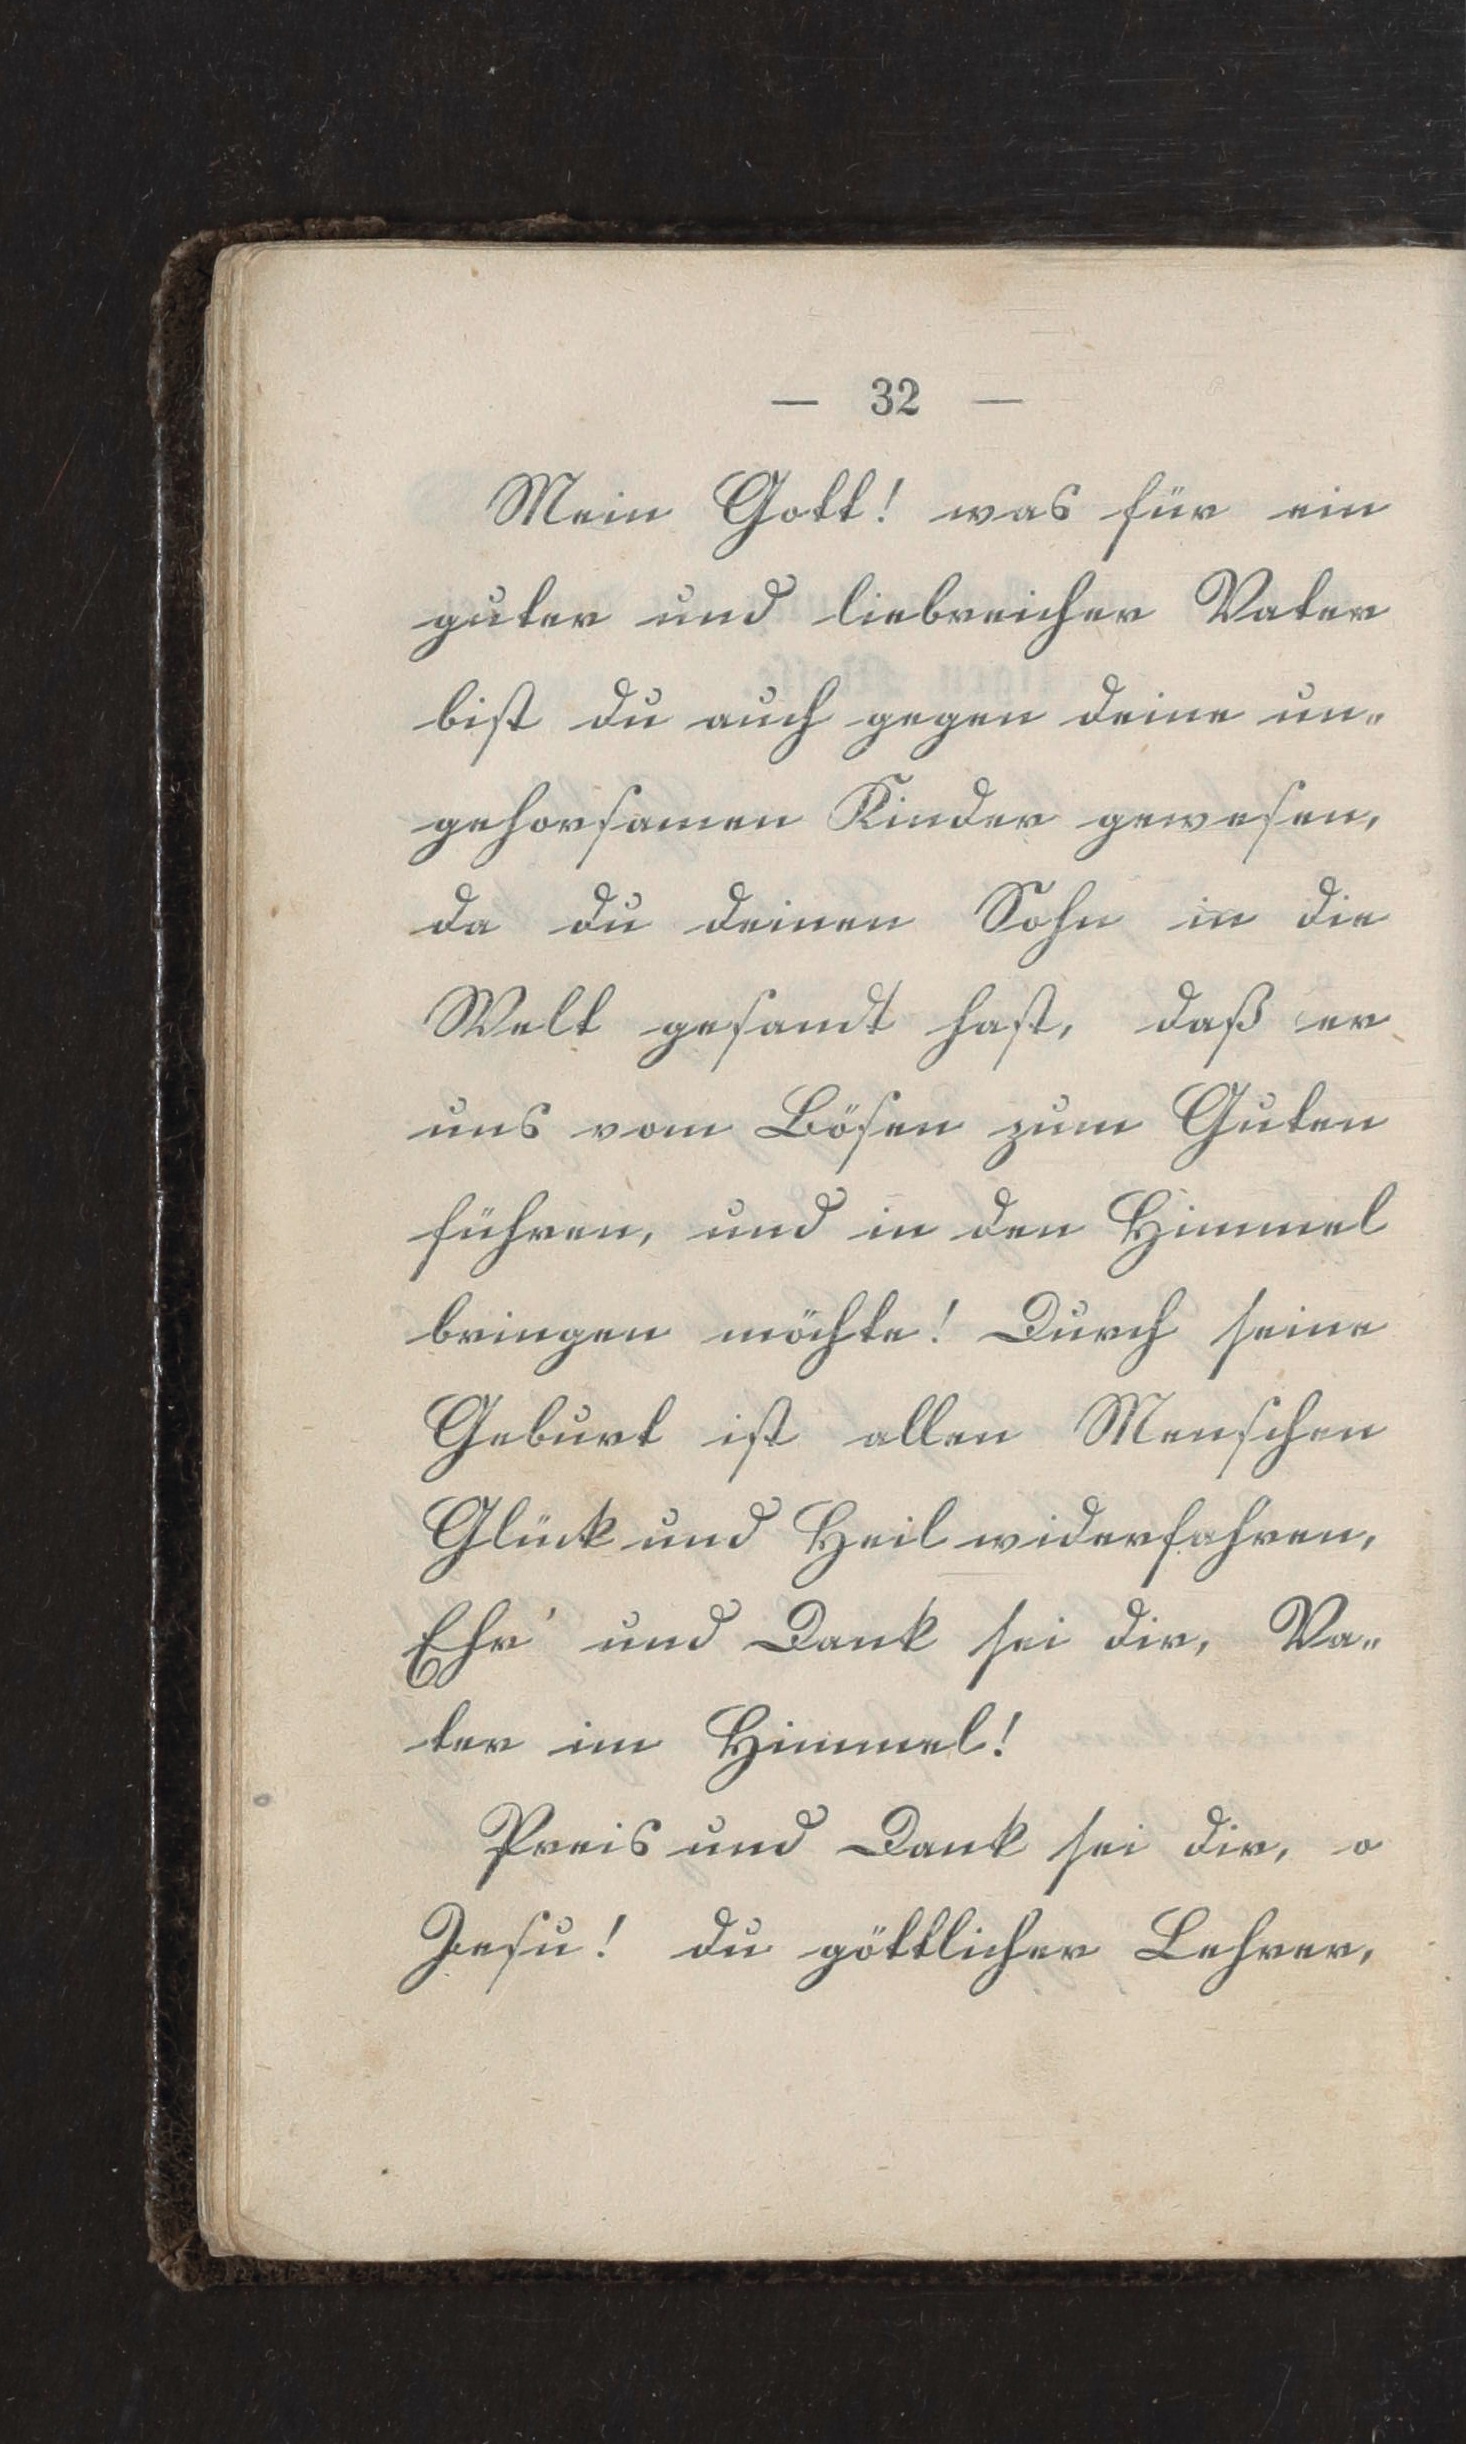 — 32 —
Mein Gott! was für ein
guter und liebreicher Vater
bist du auch gegen deine un-
gehorsamen Kinder gewesen,
da du deinen Sohn in die
Welt gesandt hast, daß er
uns vom Bösen zum Guten
führen, und in den Himmel
bringen möchte! Durch seine
Geburt ist allen Menschen
Glück und Heil widerfahren,
Ehr' und Dank sei dir, Va-
ter im Himmel!
Preis und Dank sei dir, o
Jesu! du göttlicher Lehrer,